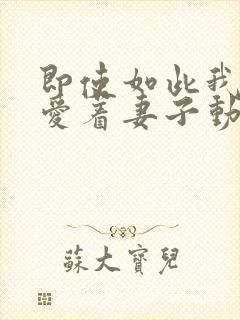 即使如此我
愛着妻子動
蘇大寶兒